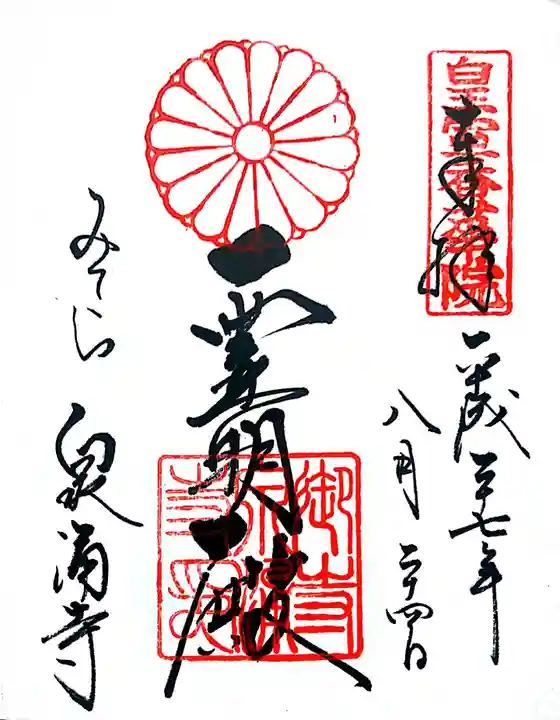 皇室香華院
奉拝
平成二十七年
八月二十四日
霊明殿
みてら
泉涌寺